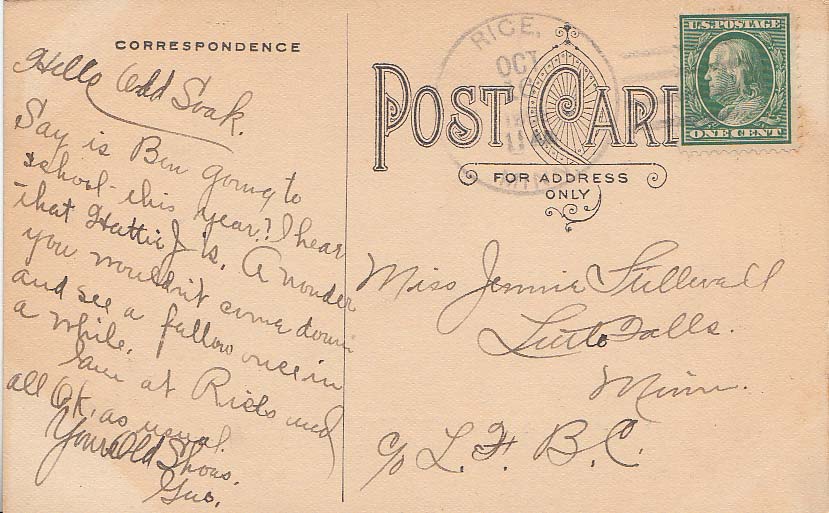 CORRESPONDENCE
Hello Old Soak.
Say is Ben going to
school this year? I hear
that Hattie J is. A wonder
you wouldn't come down
and see a fellow once in
a while.
I am at Rices and
all O.K. as usual.
Yours Old Shoes.
Geo.
POST CARD
FOR ADDRESS
ONLY
RICE,
OCT
11 AM
MINN
U.S. POSTAGE
ONE CENT
Miss Jennie Stillwell
Little Falls.
Minn.
c/o L. F. B. C.